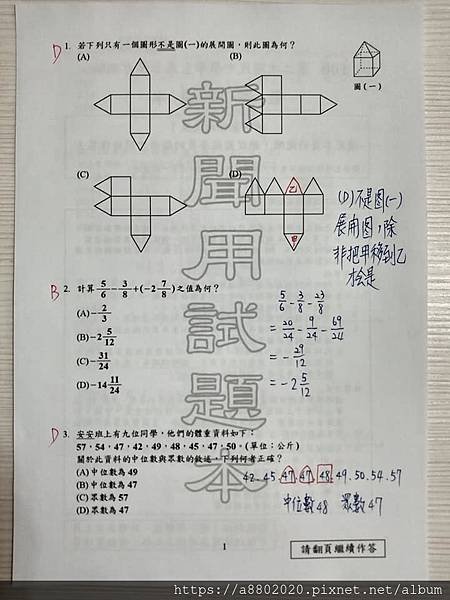 D 1. 若下列只有一個圖形不是圖(一)的展開圖，則此圖為何？
(A) (B)
圖(一)
(C) (D)
乙
甲
(D)不是图(一)
展開图，除
非把甲移到乙
才会是
B 2. 計算 5/6 - 3/8 + (-2 7/8) 之值為何？
(A) -2/3
(B) -2 5/12
(C) -31/24
(D) -14 11/24
5/6 - 3/8 - 23/8
= 20/24 - 9/24 - 69/24
= -29/12
= -2 5/12
D 3. 安安班上有九位同學，他們的體重資料如下：
57，54，47，42，49，48，45，47，50。(單位：公斤)
關於此資料的中位數與眾數的敘述，下列何者正確？
(A) 中位數為 49
(B) 中位數為 47
(C) 眾數為 57
(D) 眾數為 47
42.45.47.47.48.49.50.54.57
中位數48 眾數47
新聞用試題本
1
請翻頁繼續作答
https://a8802020.pixnet.net/album